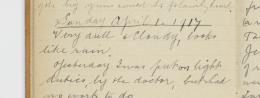 Sunday April 1st 1917
Very dull & cloudy, looks
like rain.
Yesterday I was put on light
duties by the doctor, but had
no work to do